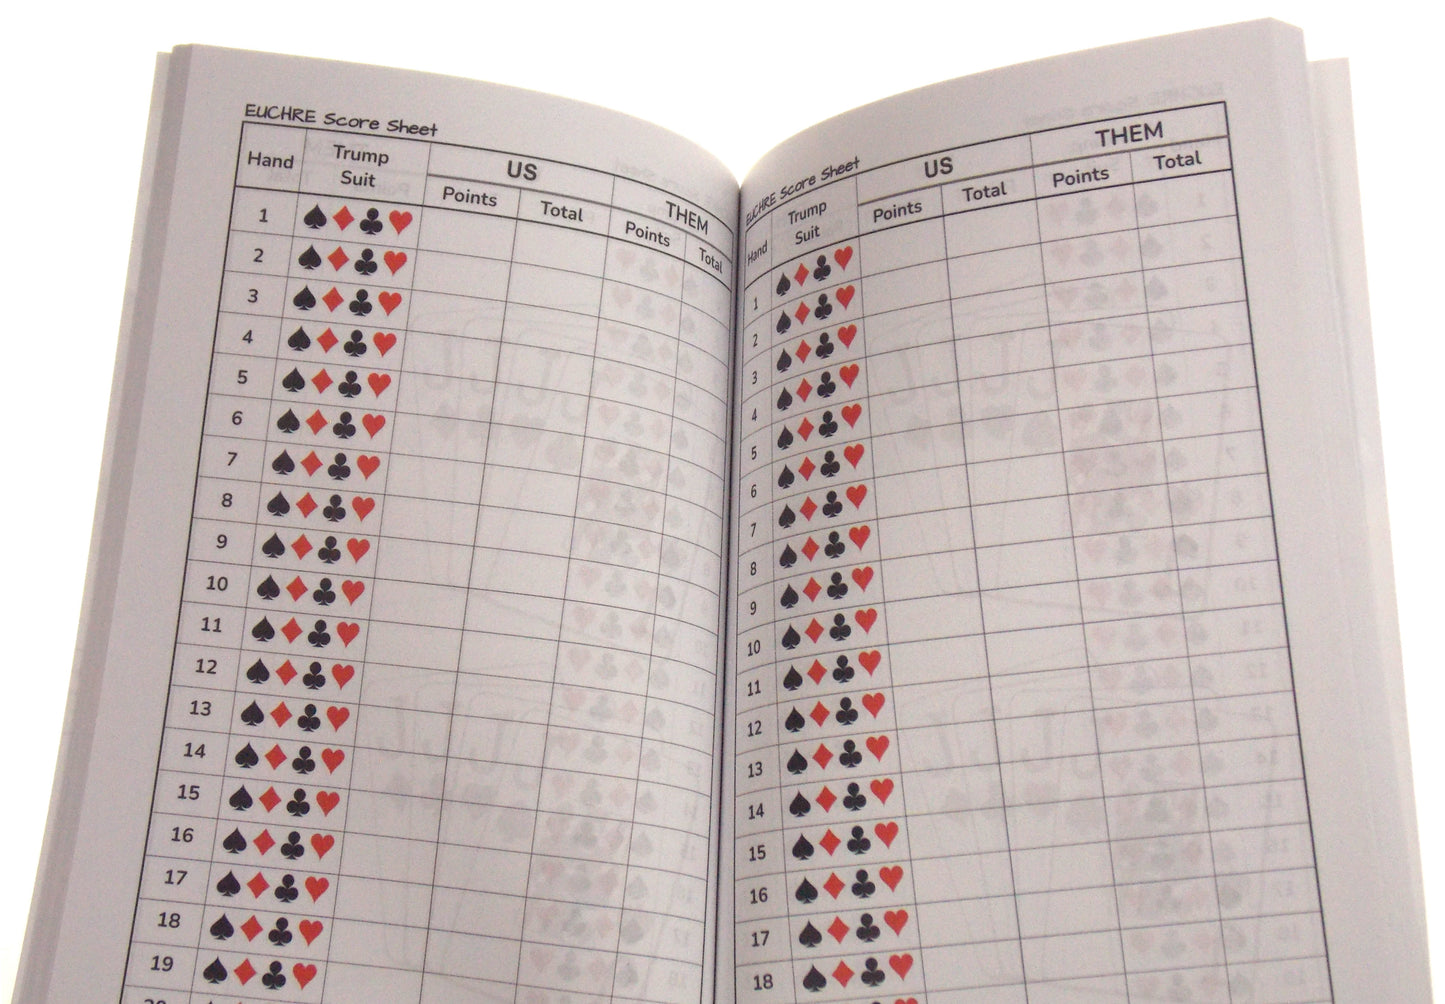 EUCHRE Score Sheet
Hand Trump Suit US THEM
Points Total Points Total
1 ♠♦♣♥
2 ♠♦♣♥
3 ♠♦♣♥
4 ♠♦♣♥
5 ♠♦♣♥
6 ♠♦♣♥
7 ♠♦♣♥
8 ♠♦♣♥
9 ♠♦♣♥
10 ♠♦♣♥
11 ♠♦♣♥
12 ♠♦♣♥
13 ♠♦♣♥
14 ♠♦♣♥
15 ♠♦♣♥
16 ♠♦♣♥
17 ♠♦♣♥
18 ♠♦♣♥
19 ♠♦♣♥
EUCHRE Score Sheet
Hand Trump Suit US THEM
Points Total Points Total
1 ♠♦♣♥
2 ♠♦♣♥
3 ♠♦♣♥
4 ♠♦♣♥
5 ♠♦♣♥
6 ♠♦♣♥
7 ♠♦♣♥
8 ♠♦♣♥
9 ♠♦♣♥
10 ♠♦♣♥
11 ♠♦♣♥
12 ♠♦♣♥
13 ♠♦♣♥
14 ♠♦♣♥
15 ♠♦♣♥
16 ♠♦♣♥
17 ♠♦♣♥
18 ♠♦♣♥